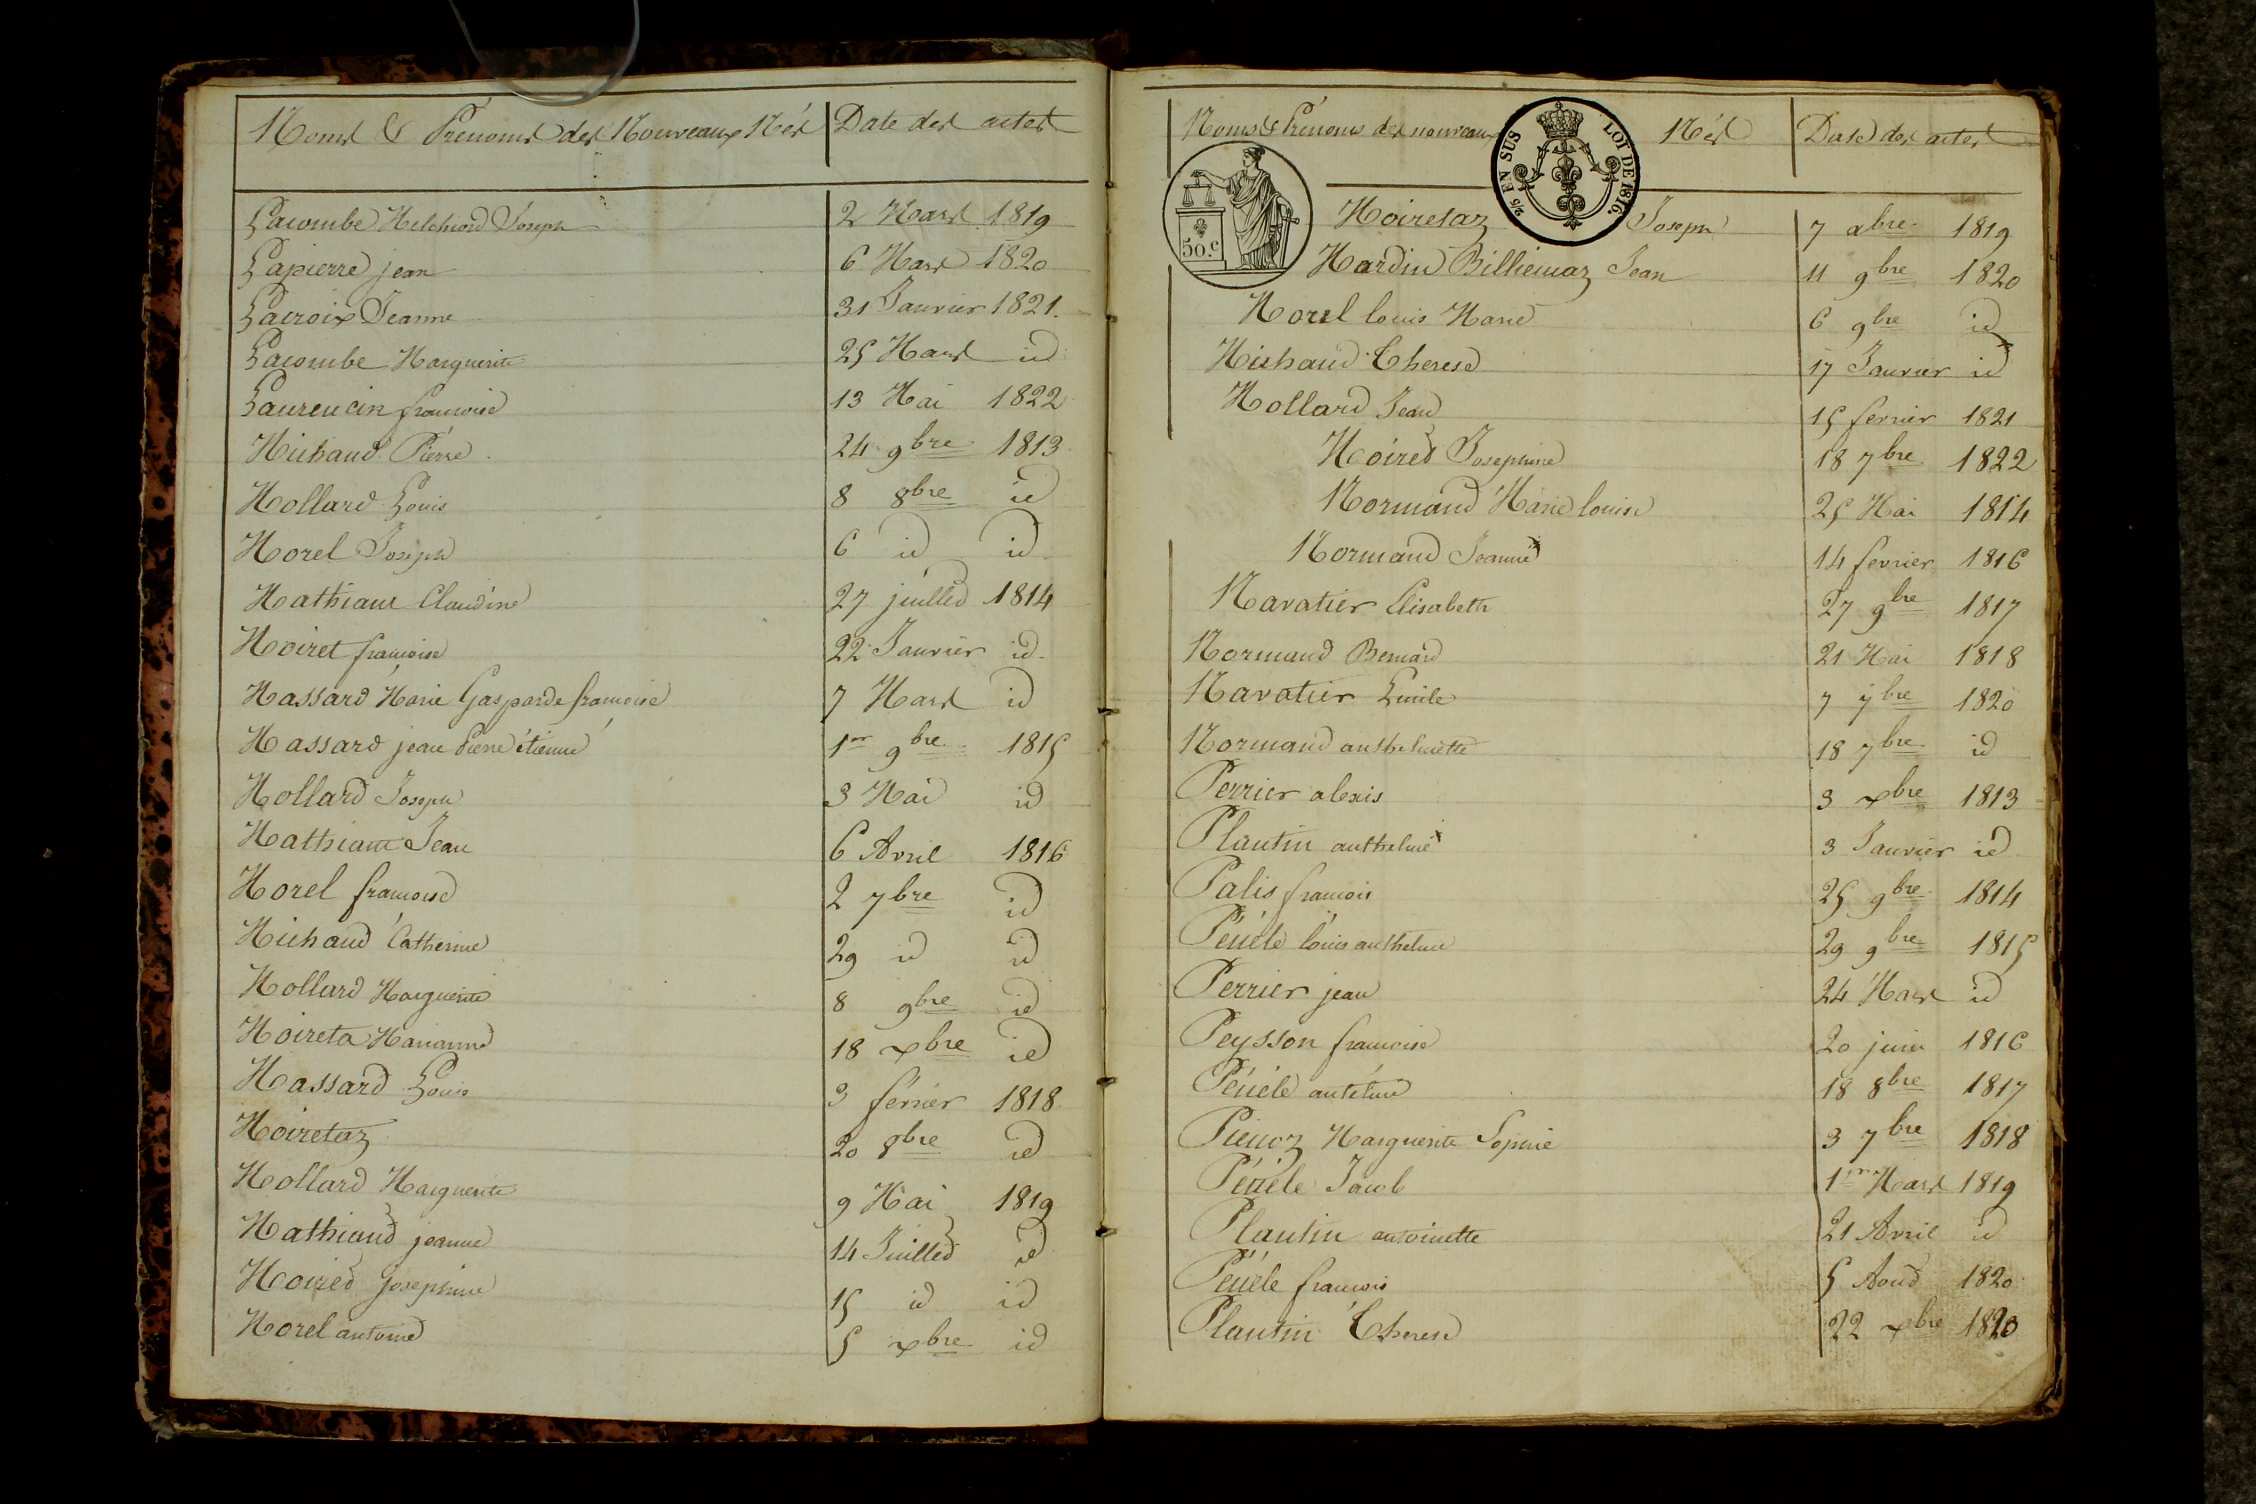 Noms & Prénoms des Nouveaux Nés Date des actes
Lacombe Melchiord Joseph 2 Mars 1819
Lapierre jean 6 Mars 1820
Lacroix Jeanne 31 Janvier 1821.
Lacombe Marguerite 25 Mars id
Laurencin francoise 13 Mai 1822
Michaud Pierre 24 9bre 1813
Mollard Louis 8 8bre id
Morel Joseph 6 id id
Mathiam Claudine 27 juillet 1814
Moiret francoise 22 Janvier id
Massard Marie Gasparde francoise 7 Mars id
Massard jean Pierre étienne 1er 9bre 1815
Mollard Joseph 3 Mai id
Mathiam Jean 6 Avril 1816
Morel francoise 2 7bre id
Michaud Catherine 29 id id
Mollard Marguerite 8 9bre id
Moireta Marianne 18 xbre id
Massard Louis 3 février 1818
Moiretaz 20 8bre id
Mollard Marguerite 9 Mai 1819
Mathiand jeanne 14 Juillet id
Moiret Josephine 15 id id
Morel antoine 5 xbre id
Noms & Prénoms des nouveaux Nés Date des actes
5/5 EN SUS LOI DE 1816.
50.c
Moiretaz Joseph 7 xbre 1819
Mardin Billiemaz Jean 11 9bre 1820
Morel louis Marie 6 9bre id
Michaud Therese 17 Janvier id
Mollard Jean 15 fevrier 1821
Moiret Josephine 18 7bre 1822
Normand Marie louise 25 Mai 1814
Normand Jeanne 14 fevrier 1816
Navatier Elisabeth 27 9bre 1817
Normand Bernard 21 Mai 1818
Navatier Emile 7 7bre 1820
Normand anthelmette 18 7bre id
Perrier alexis 3 xbre 1813
Plantin anthelme 3 Janvier id
Palis francois 25 9bre 1814
Pénéle louis anthelme 29 9bre 1815
Perrier jean 24 Mars id
Peysson francoise 20 juin 1816
Pénéle antelme 18 8bre 1817
Marguerite Sophie 3 7bre 1818
Pénéle Jacob 1er Mars 1819
Plantin antoinette 21 Avril id
Pénéle francois 5 Aoud 1820
Plantin Therese 22 xbre 1820